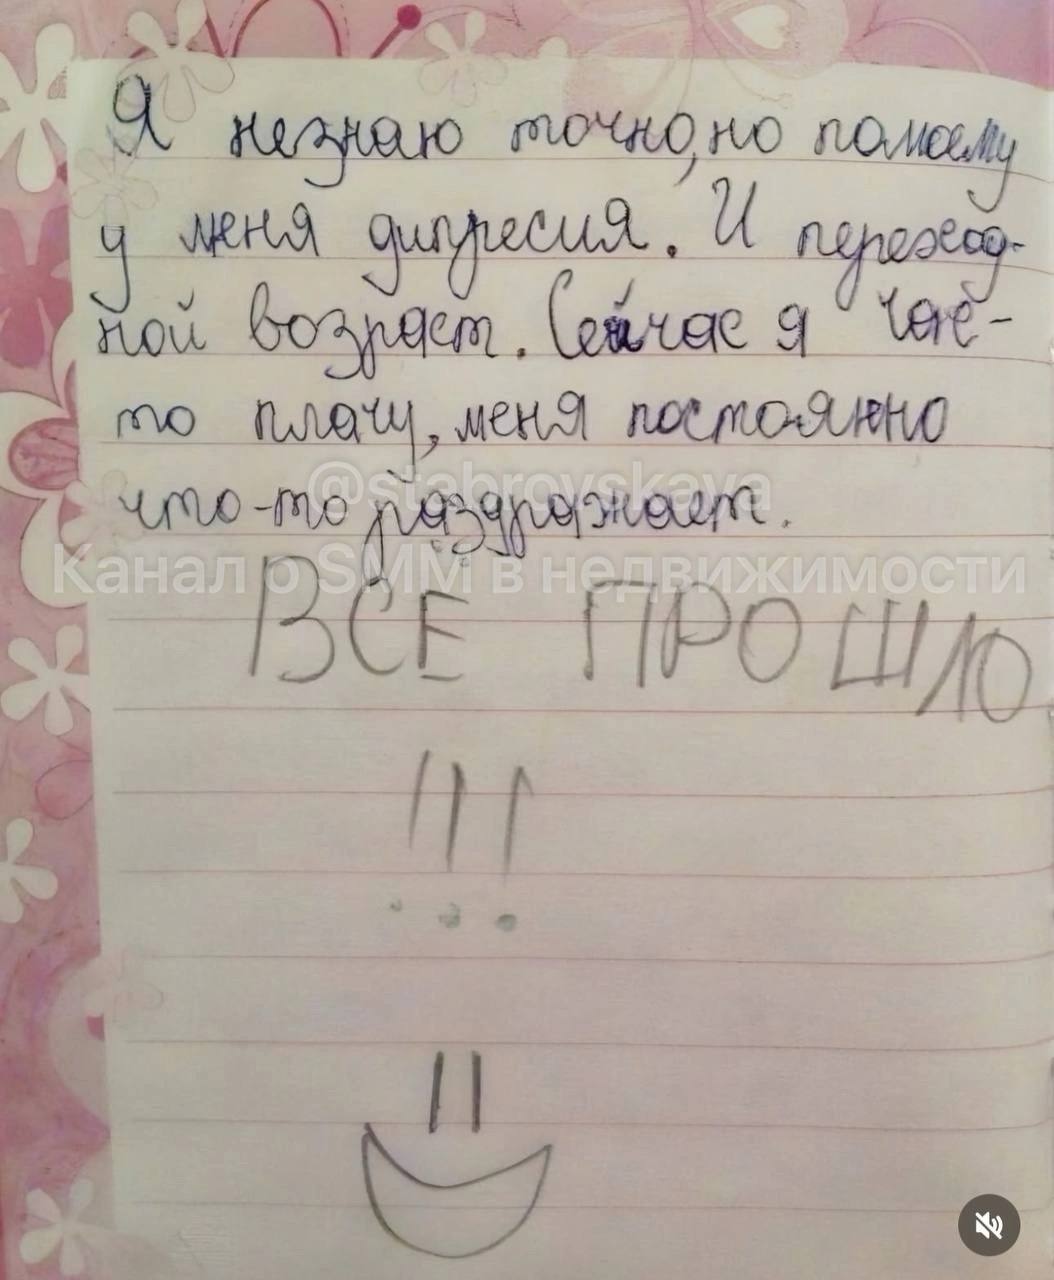 Я незнаю точно, но помоему
у меня дипресия. И переход-
ной возраст. Сейчас я час-
то плачу, меня постоянно
@stabrovskaya
что-то раздражает.
Канал о SMM в недвижимости
ВСЁ ПРОШЛО
!!!